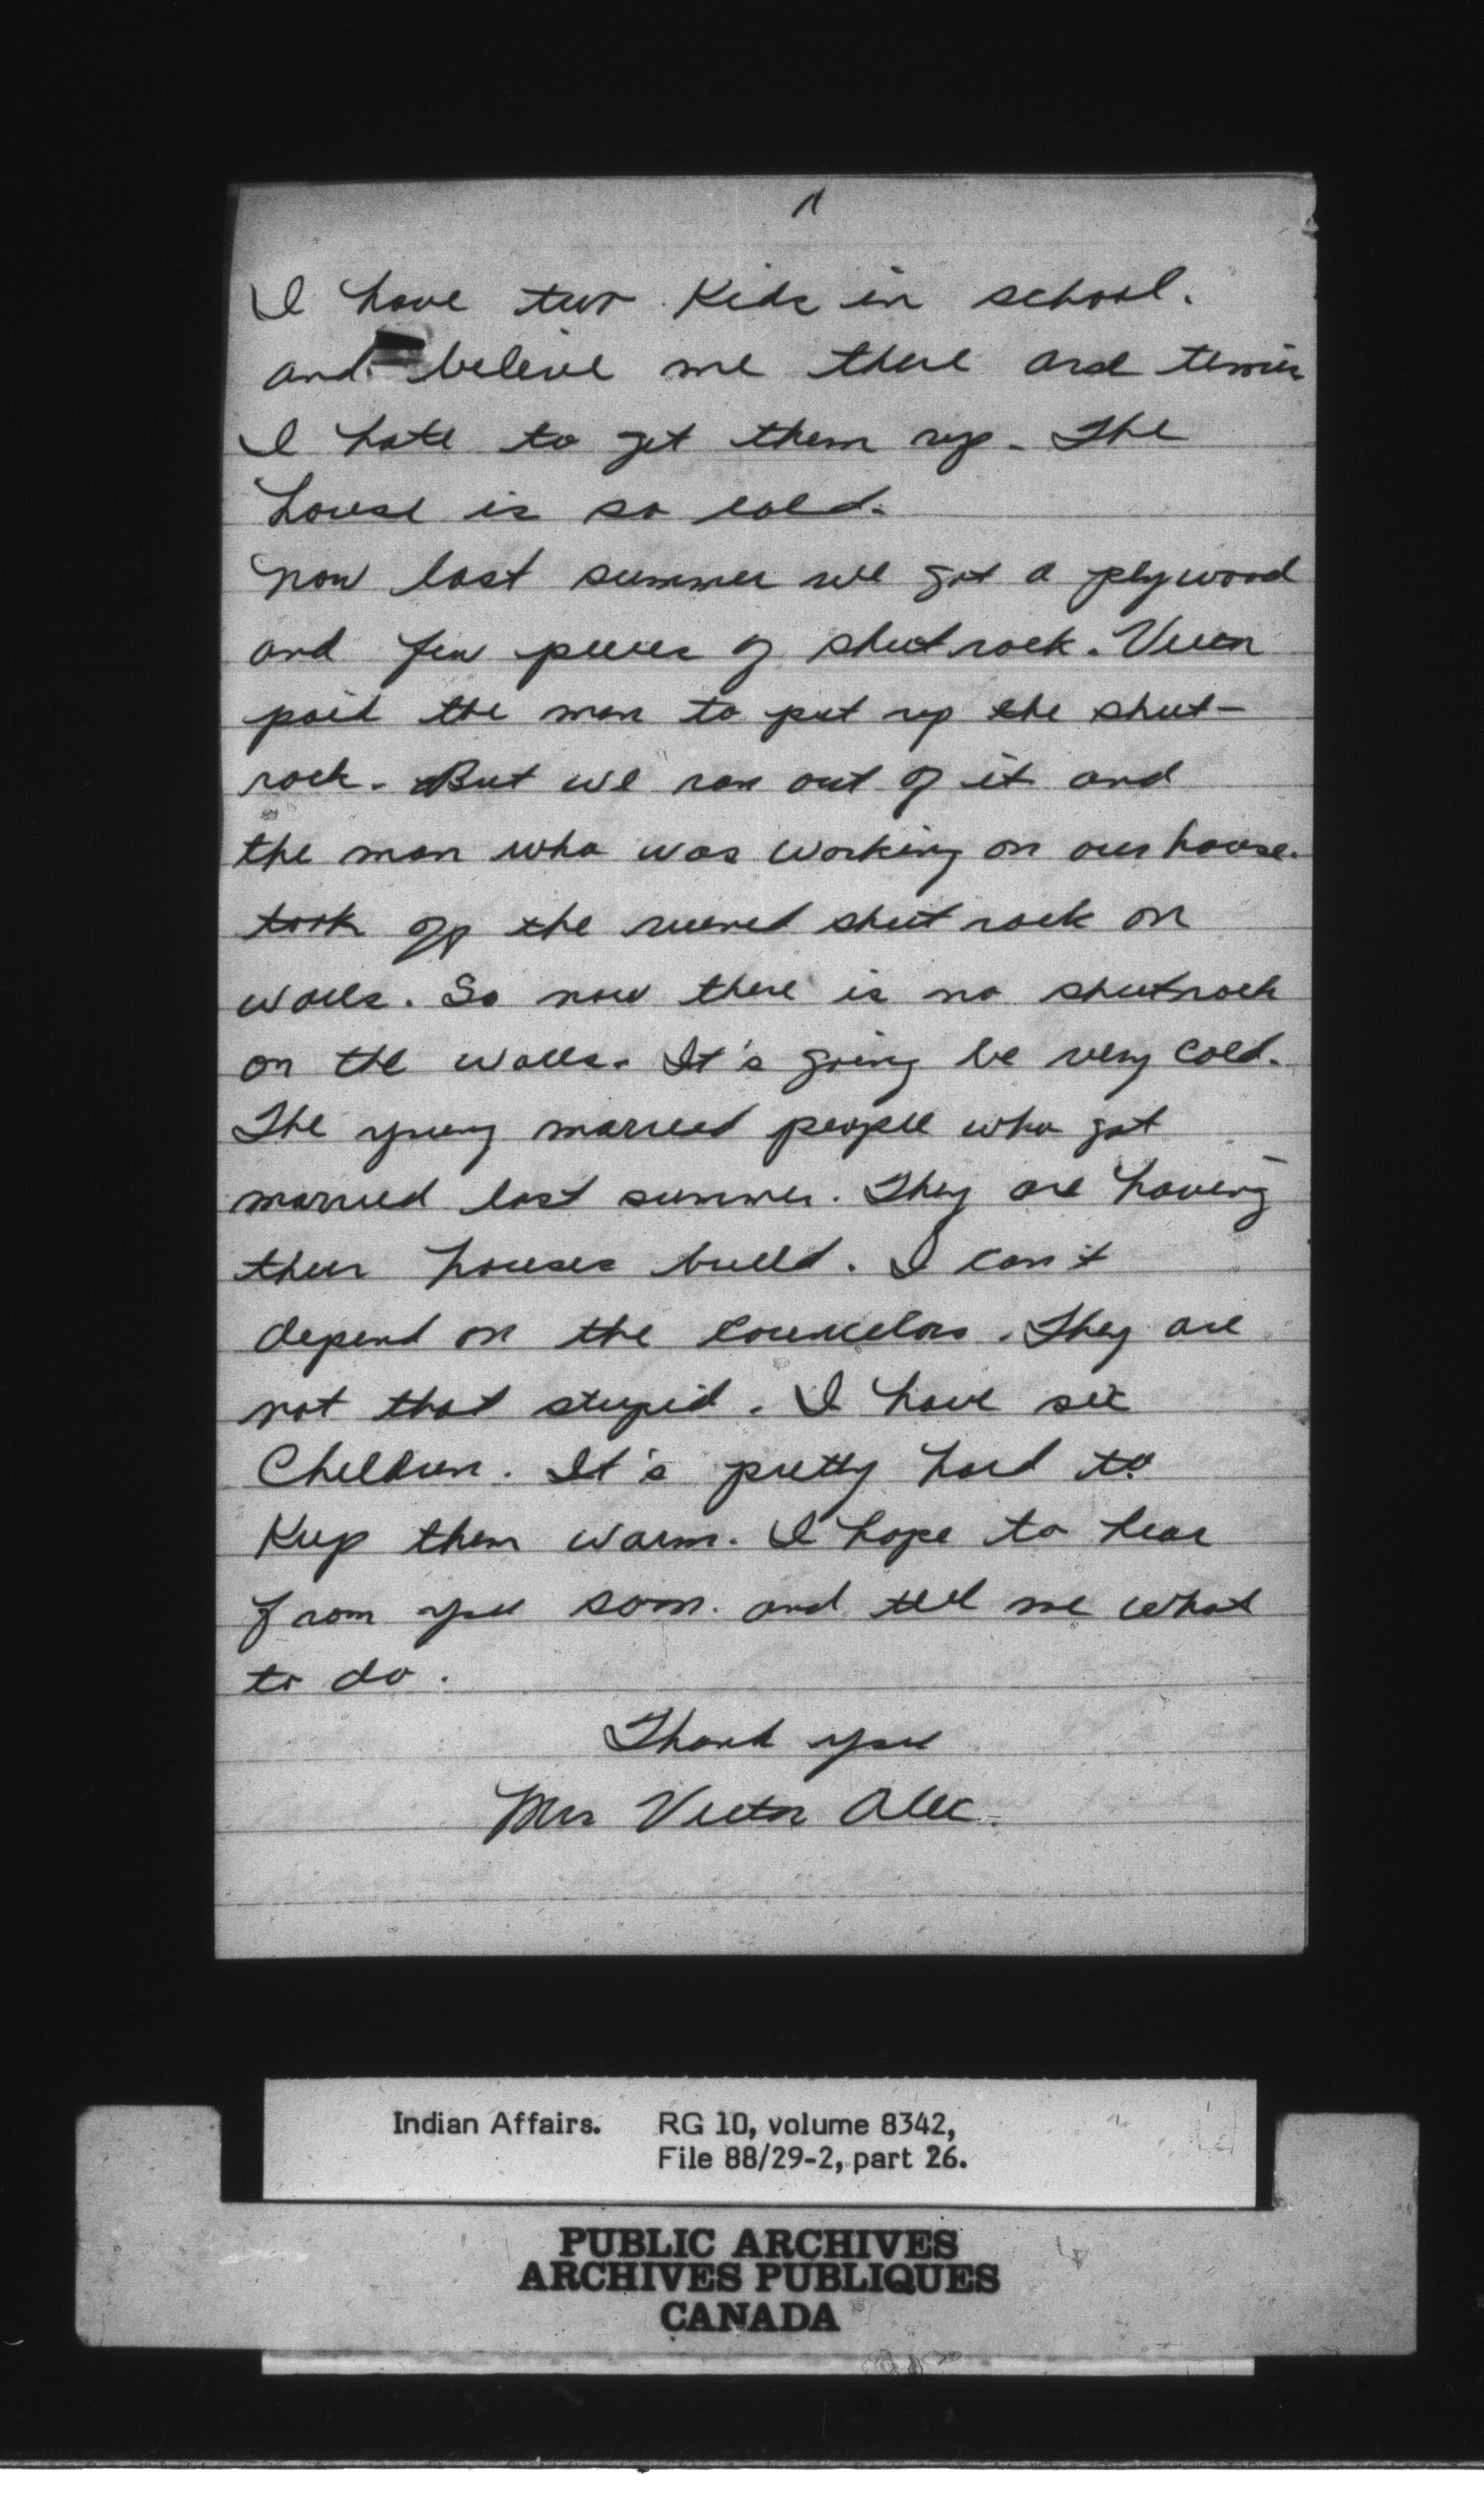 I have two Kids in school.
and beleive me there are times
I hate to get them up. The
house is so cold.
now last summer we got a plywood
and few pieces of sheetrock.
paid the man to put up the sheet-
rock. But we ran out of it and
the man who was working on our house.
took off the ruined sheetrock on
walls. So now there is no sheetrock
on the walls. It's going be very cold.
The young married people who got
married last summer. They are having
their houses build. I can't
depend on the Councelors. They are
not that stupid. I have six
Children. It's pretty hard to
Keep them warm. I hope to hear
from you soon. and tell me what
to do.
Thank you
Mrs Victor Alec.
Indian Affairs. RG 10, volume 8342,
File 88/29-2, part 26.
PUBLIC ARCHIVES
ARCHIVES PUBLIQUES
CANADA